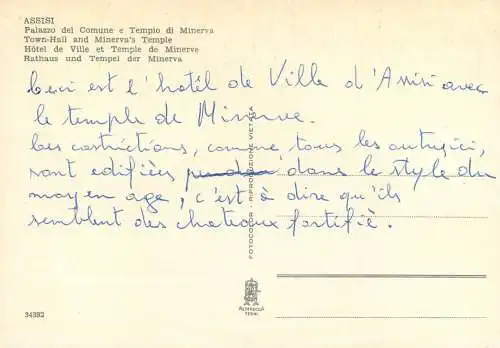 ASSISI
Palazzo del Comune e Tempio di Minerva
Town-Hall and Minerva's Temple
Hôtel de Ville et Temple de Minerve
Rathaus und Tempel der Minerva
Ceci est l'hotêl de Ville d'Assisi avec
le temple de Minerve.
Les costrictions, comme tous les autres ici,
sont edifièes dans le style du
moyen age, c'est à dire qu'ils
semblent des chateaux fortifiè.
FOTOCOLOR - RIPRODUZIONE VIETATA
34382